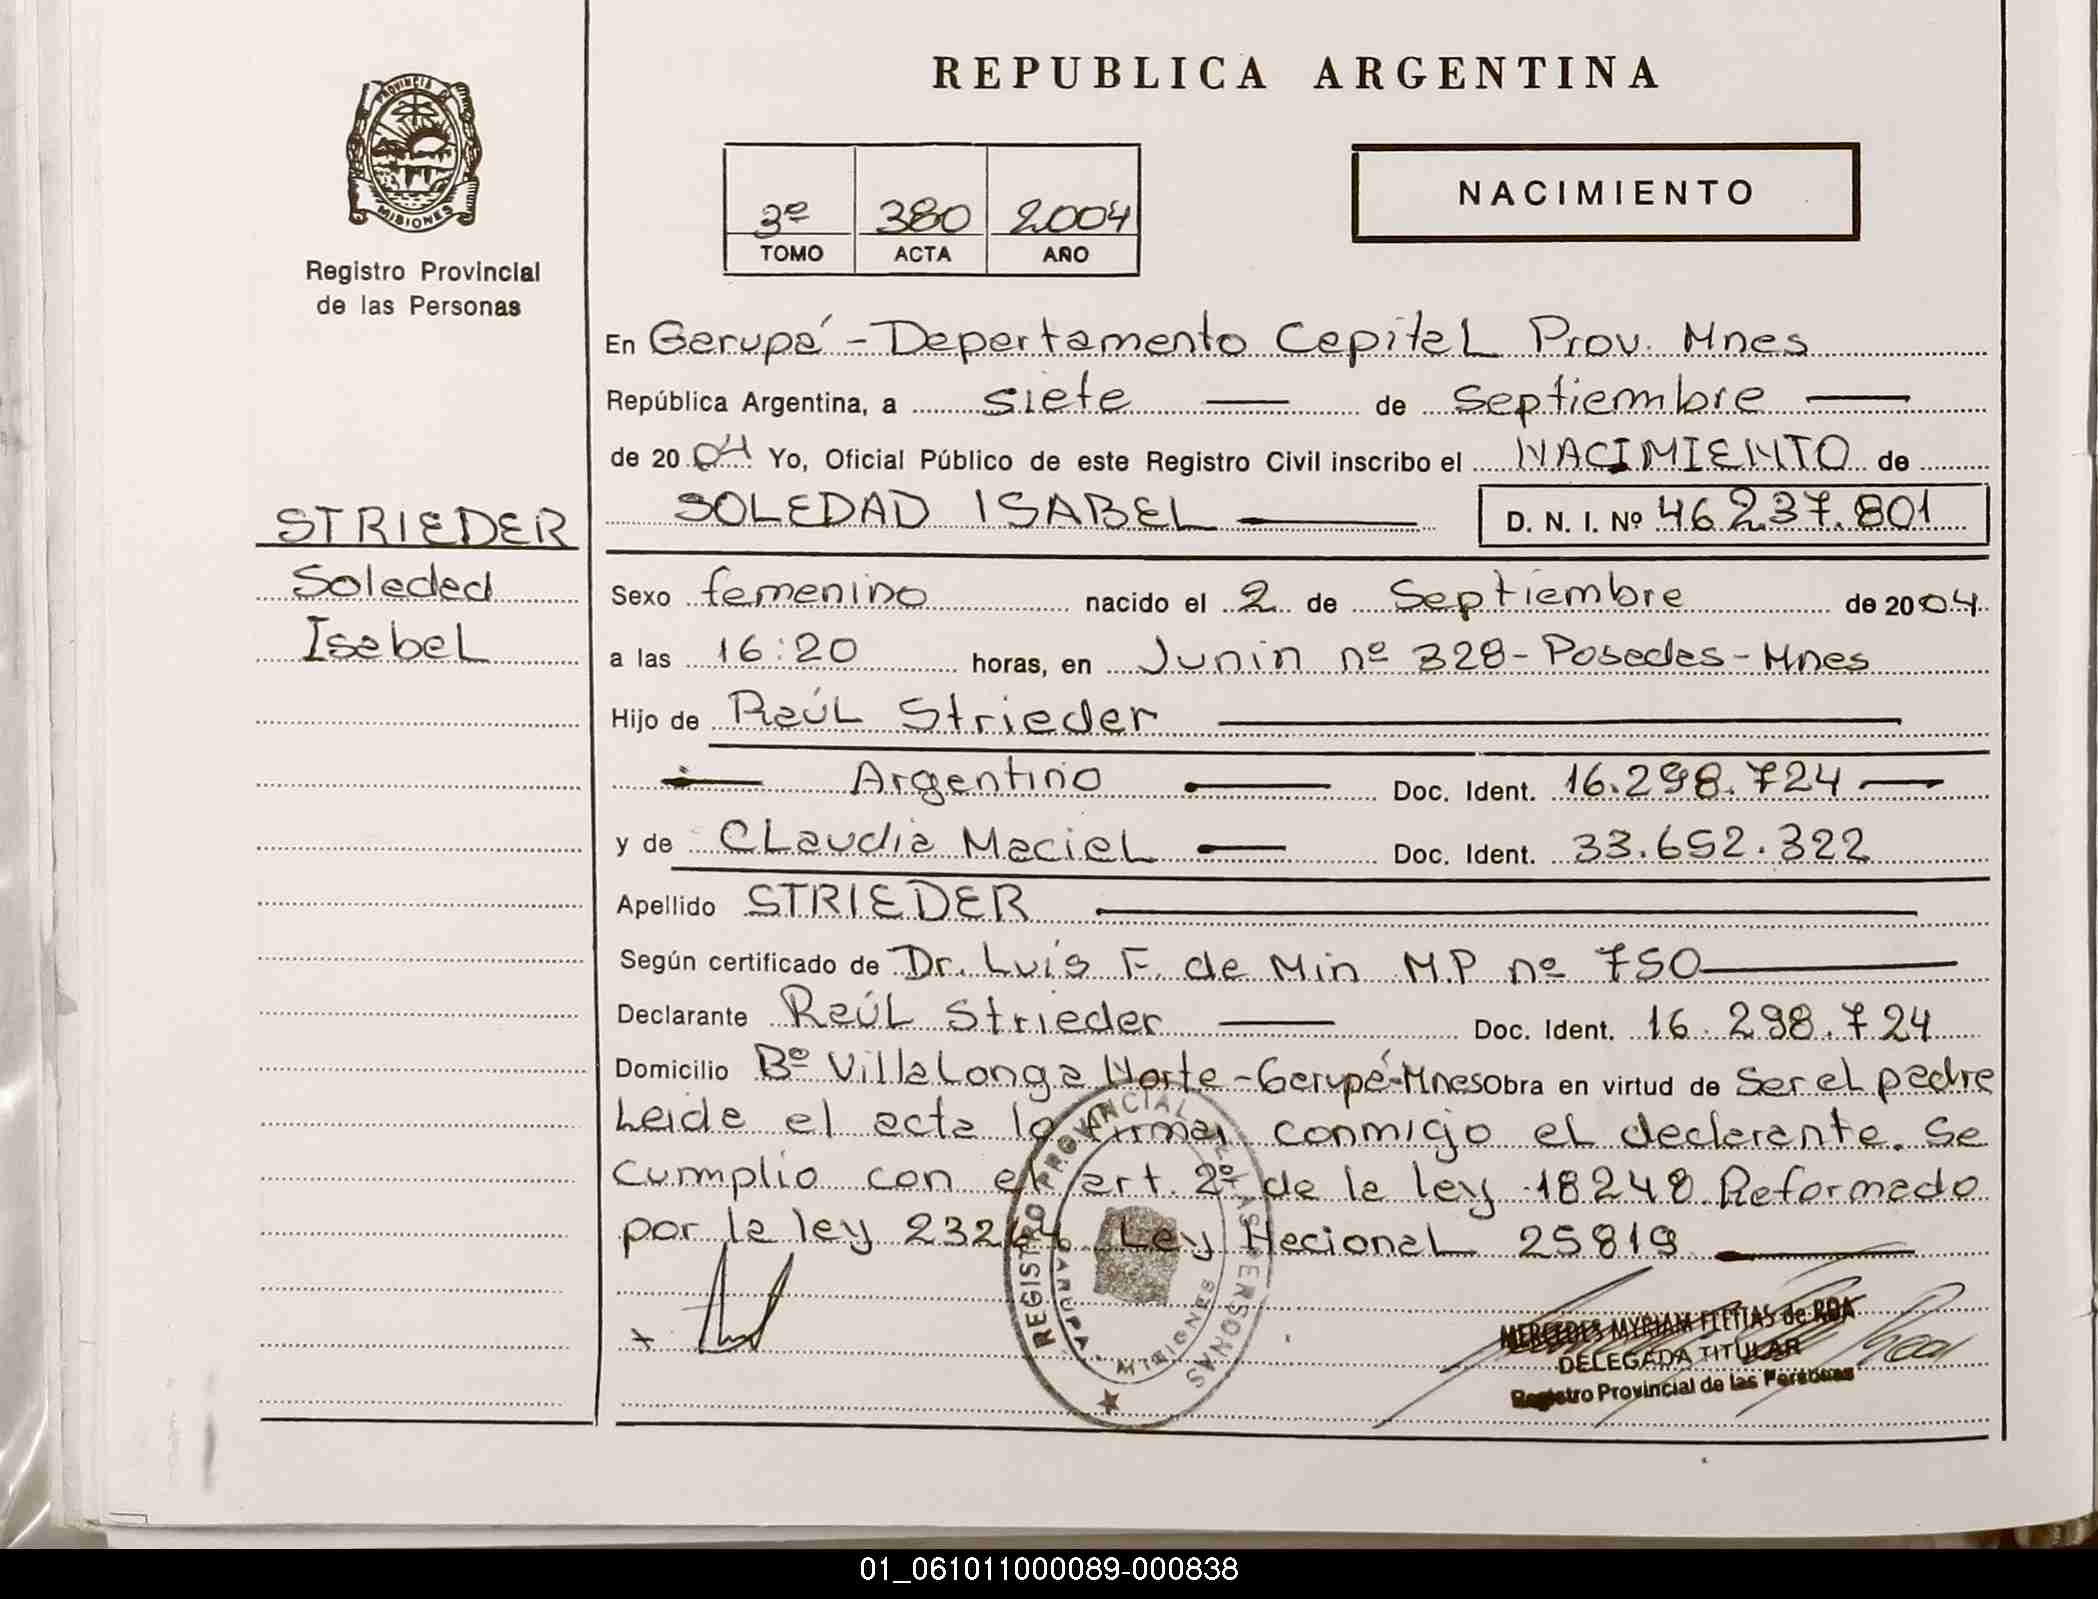 REPUBLICA ARGENTINA
PROVINCIA DE
MISIONES
Registro Provincial
de las Personas
3º 380 2004
TOMO ACTA AÑO
NACIMIENTO
En Garupá - Departamento Capital Prov. Mnes
República Argentina, a siete de Septiembre
de 2004 Yo, Oficial Público de este Registro Civil inscribo el NACIMIENTO de
SOLEDAD ISABEL D. N. I. Nº 46.237.801
STRIEDER
Soledad
Isabel
Sexo femenino nacido el 2 de Septiembre de 2004
a las 16:20 horas, en Junin nº 328 - Posadas - Mnes
Hijo de Raúl Strieder
Argentino Doc. Ident. 16.298.724
y de Claudia Maciel Doc. Ident. 33.652.322
Apellido STRIEDER
Según certificado de Dr. Luis F. de Min M.P nº 750
Declarante Raúl Strieder Doc. Ident. 16.298.724
Domicilio Bº Villalonga Norte - Garupá - Mnes Obra en virtud de Ser el padre
Leida el acta la firma conmigo el declarante. Se
cumplio con el art. 2º de la ley 18248 Reformado
por la ley 23264 Ley Nacional 25819
REGISTRO PROVINCIAL DE LAS PERSONAS
GARUPA - MISIONES
MERCEDES MYRIAM FLEITAS de ROA
DELEGADA TITULAR
Registro Provincial de las Personas
01_061011000089-000838